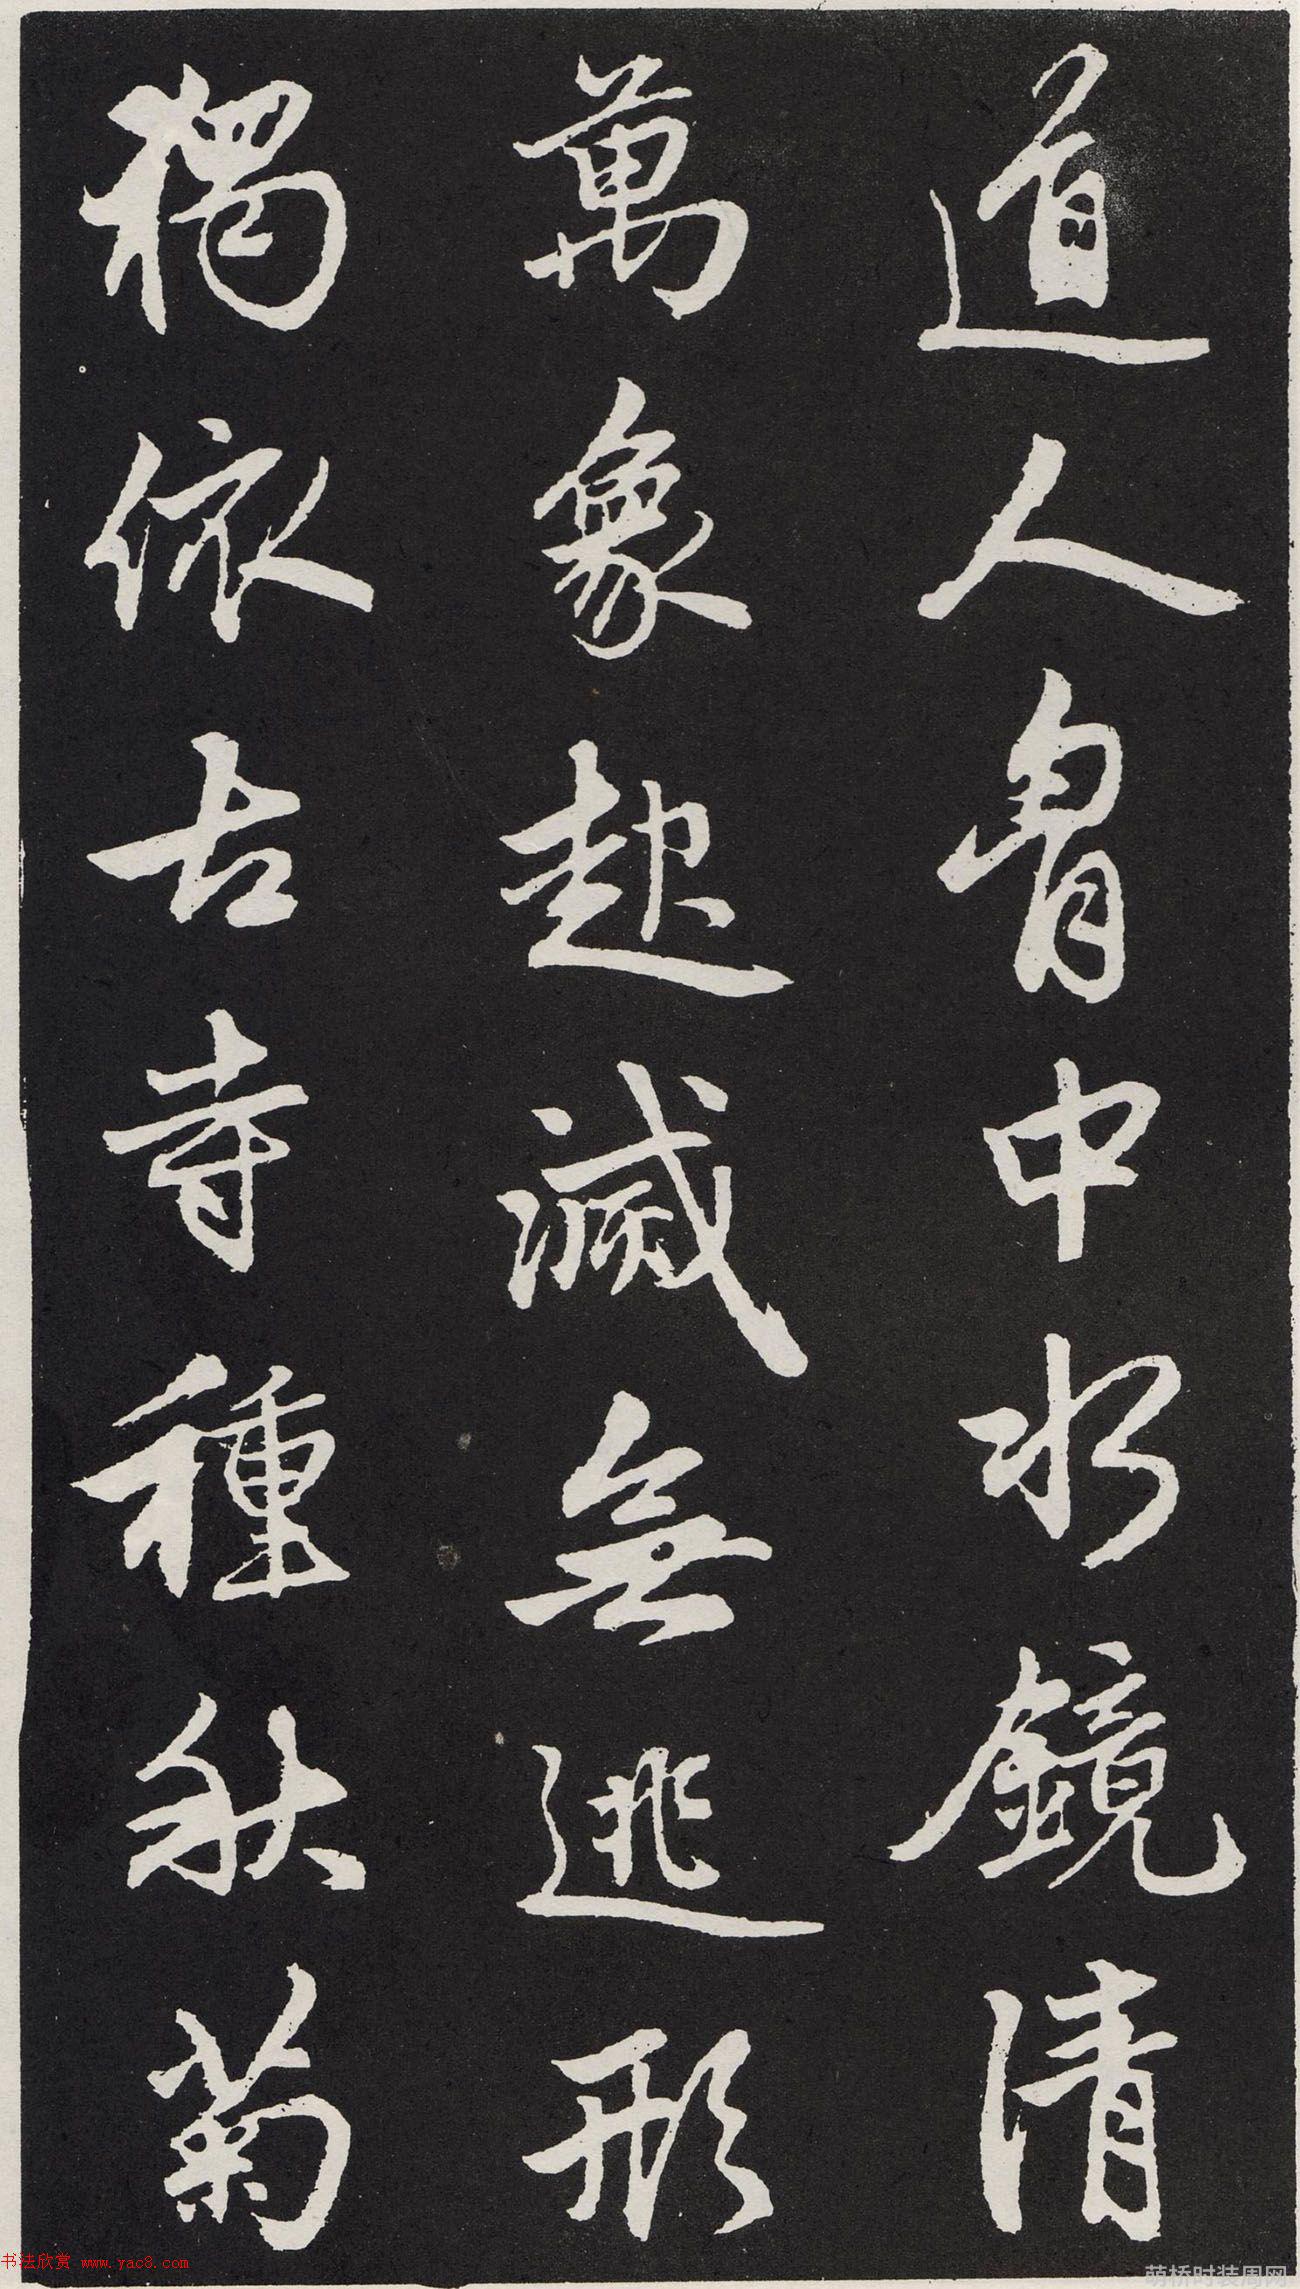 道人胷中水鏡清
萬象起滅無逃形
獨依古寺種秋菊
书法欣赏 www.yac8.com
萌桥时装周网